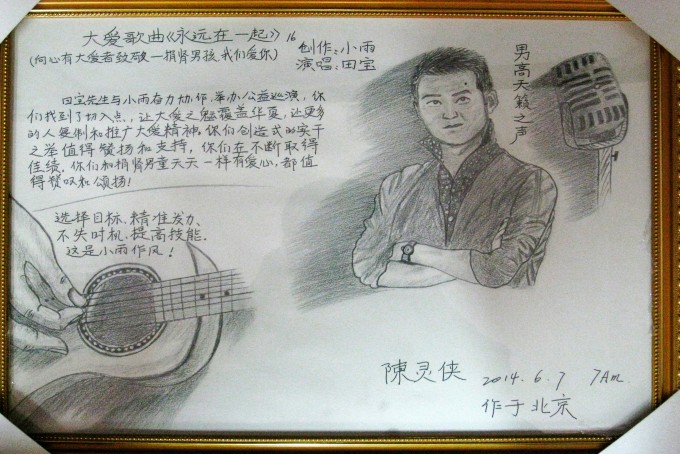 大爱歌曲《永远在一起》16
(向心有大爱者致敬—捐肾男孩,我们爱你)
创作:小雨
演唱:田宝
男高天籁之声
田宝先生与小雨奋力协作,举办公益巡演,你
们找到了切入点,让大爱之魅覆盖华夏,让更多
的人复制和推广大爱精神。你们创造式的实干
之举值得赞扬和支持,你们在不断取得
佳绩.你们和捐肾男童天天一样有爱心,都值
得赞叹和颂扬!
选择目标、精准发力、
不失时机、提高技能.
这是小雨作风!
陳灵侠 2014.6.7 7Am
作于北京